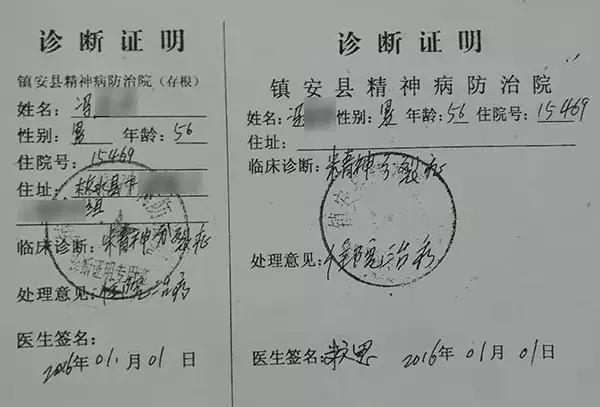 诊断证明
镇安县精神病防治院（存根）
姓名：冯
性别：男 年龄：56
住院号：15469
住址：柞水县
组
临床诊断：精神分裂症
诊断证明专用章
处理意见：住院治疗
医生签名：
2016年01月01日
诊断证明
镇安县精神病防治院
姓名：冯 性别：男 年龄：56 住院号：15469
住址：
临床诊断：精神分裂症
镇安
处理意见：住院治疗
医生签名：
2016年01月01日